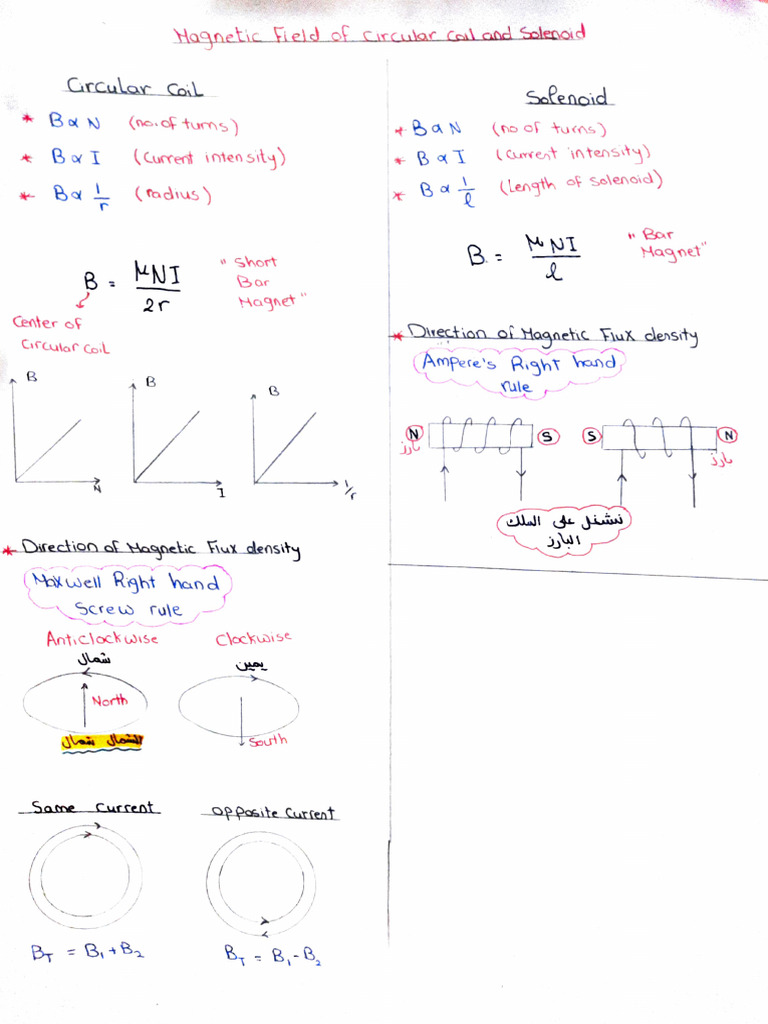 Magnetic Field of Circular Coil and Solenoid
Circular Coil
* B α N (no. of turns)
* B α I (Current intensity)
* B α 1/r (radius)
B = μNI / 2r
"Short
Bar
Magnet"
Center of
Circular Coil
B
N
B
I
B
1/r
* Direction of Magnetic Flux density
Maxwell Right hand
Screw rule
Anticlockwise
شمال
North
الشمال شمال
Clockwise
يمين
South
Same Current
B_T = B₁ + B₂
Opposite Current
B_T = B₁ - B₂
Solenoid
* B α N (no of turns)
* B α I (Current intensity)
* B α 1/l (Length of Solenoid)
B = μNI / l
"Bar
Magnet"
* Direction of Magnetic Flux density
Ampere's Right hand
rule
N S
بارز
S N
بارز
نشتغل على السلك
البارز